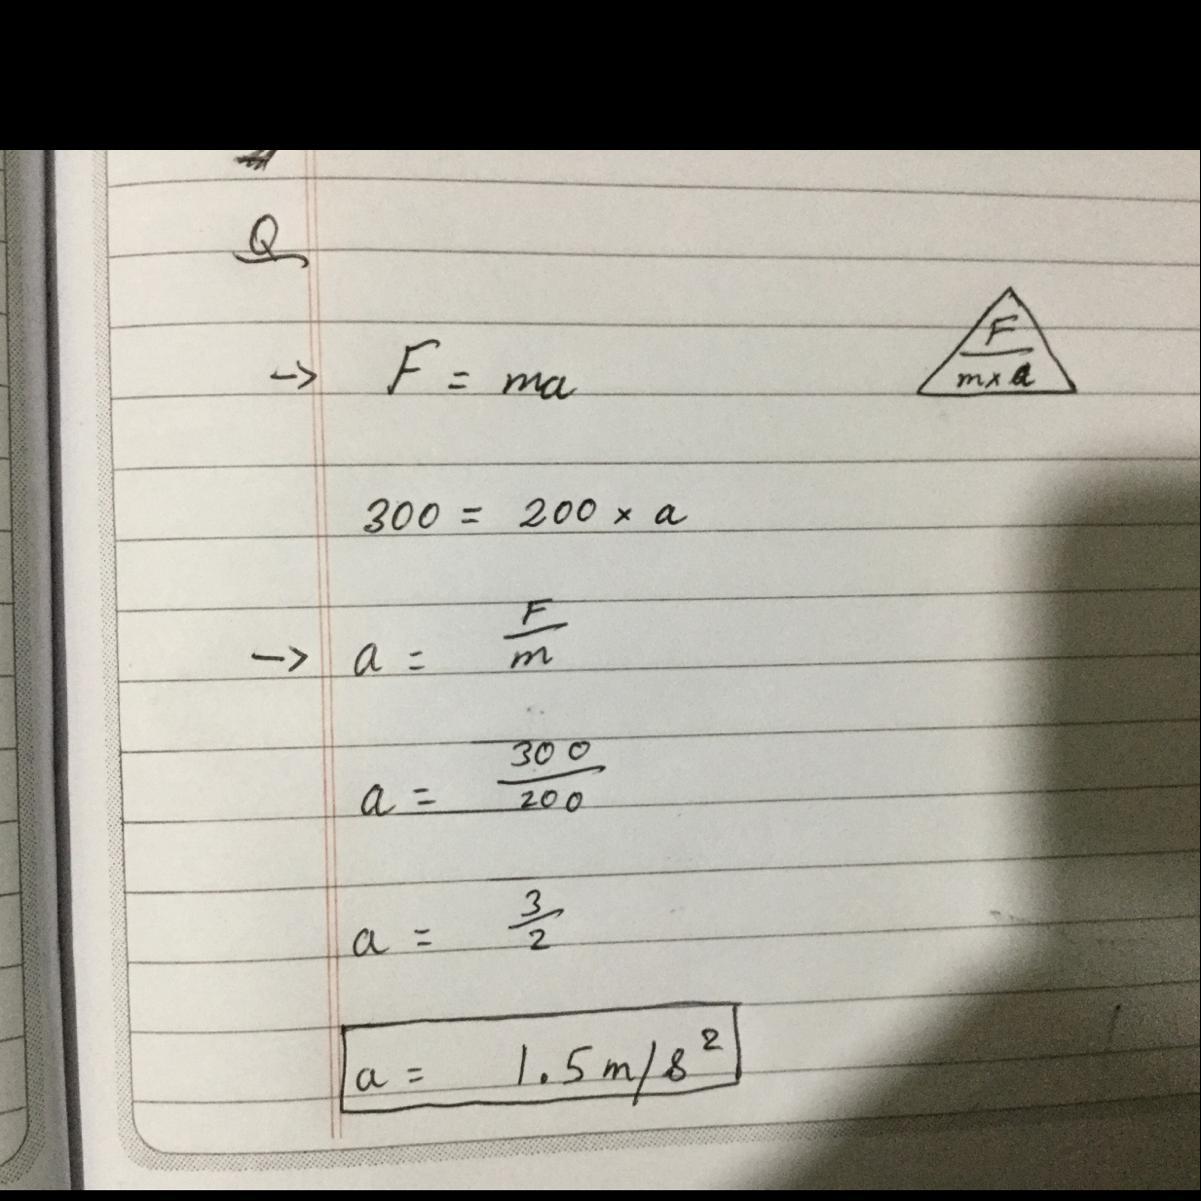 Q
→ F = ma
F
m x a
300 = 200 × a
→ a = F/m
a = 300/200
a = 3/2
a = 1.5 m/s²